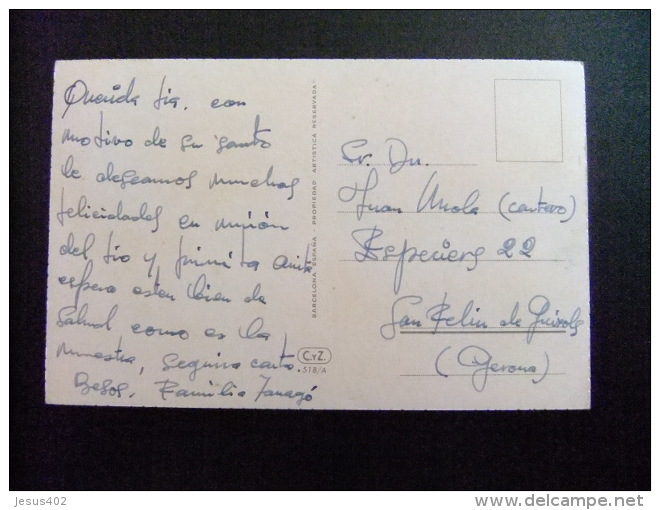 Querida tia. con
motivo de su santo
le deseamos muchas
felicidades en unión
del tio y primita Anita
espero esten bien de
salud como es la
nuestra, seguira carta
Besos. Familia
BARCELONA - ESPAÑA - PROPIEDAD ARTISTICA RESERVADA
C. y Z.
.518/A
Sr. Dn.
Juan (cantero)
Especiers 22
San Feliu de Guixols
(Gerona)
Jesus402
delcampe.net